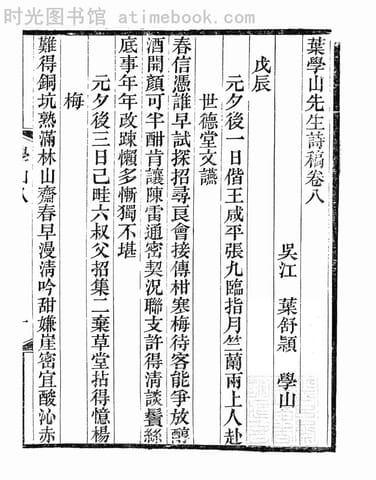 时光图书馆 atimebook.com
葉學山先生詩稿卷八
吳江 葉舒穎 學山
戊辰
元夕後一日偕王咸平張九臨指月竺蘭兩上人赴
世德堂文讌
春信憑誰早試探招尋良會接傳柑寒梅待客能爭放醇
酒開顏可半酣肯讓陳雷通密契況聯支許得清談鬢絲
底事年年改疎懶多慚獨不堪
元夕後三日己畦六叔父招集二棄草堂拈得憶楊
梅
難得銅坑熟滿林山齋春早漫清吟甜嫌崖密宜酸沁赤
學山八
一